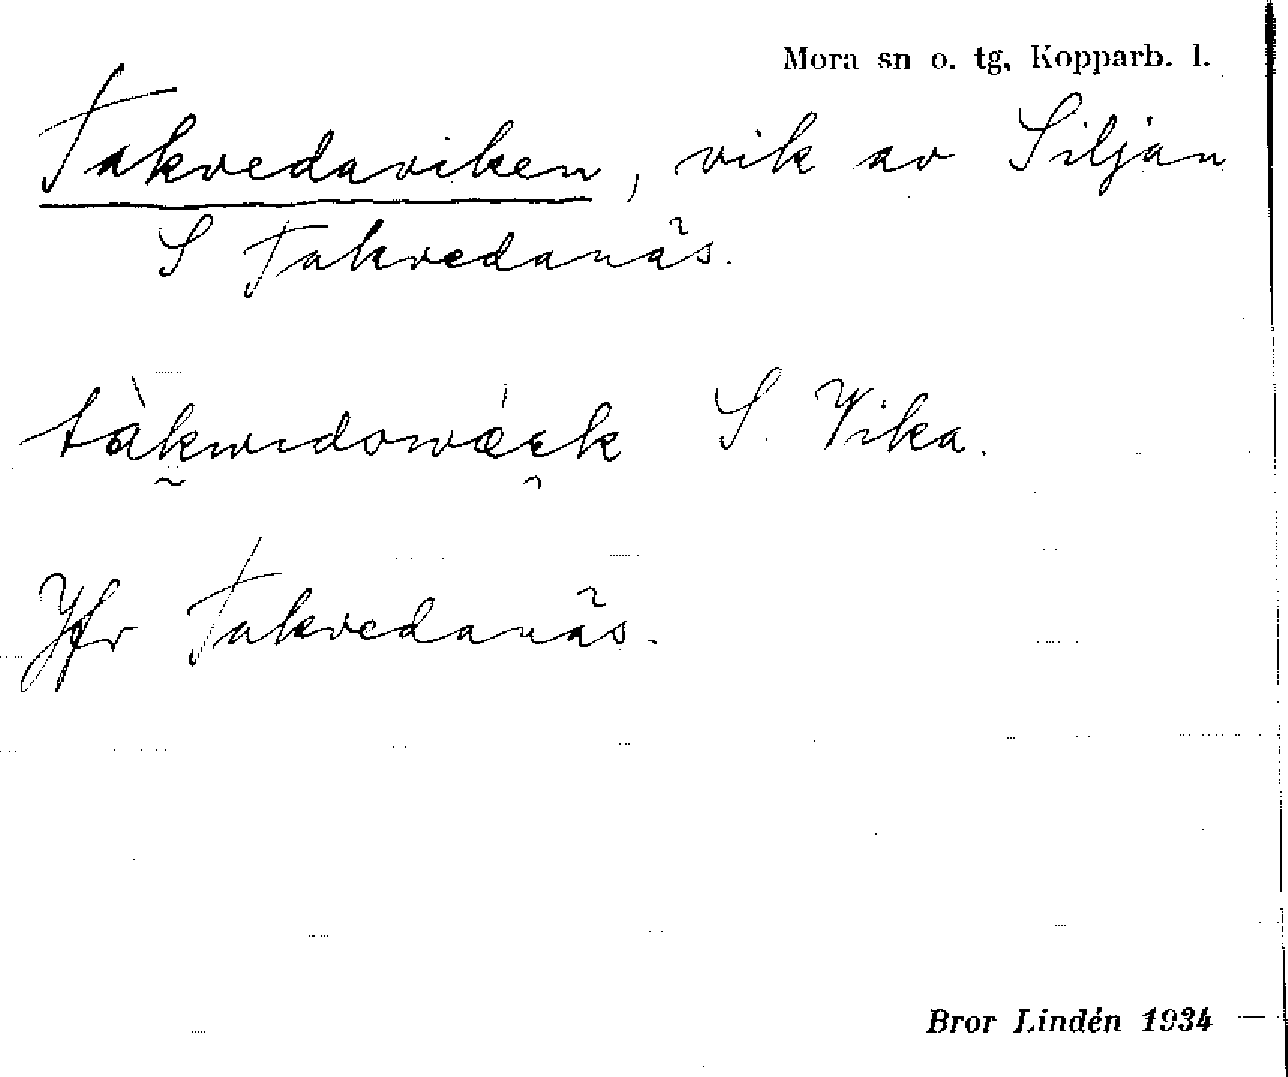 Mora sn o. tg, Kopparb. l.
Takvedaviken, vik av Siljan
S Takvedanäs.
S. Vika.
Jfr Takvedanäs.
Bror Lindén 1934